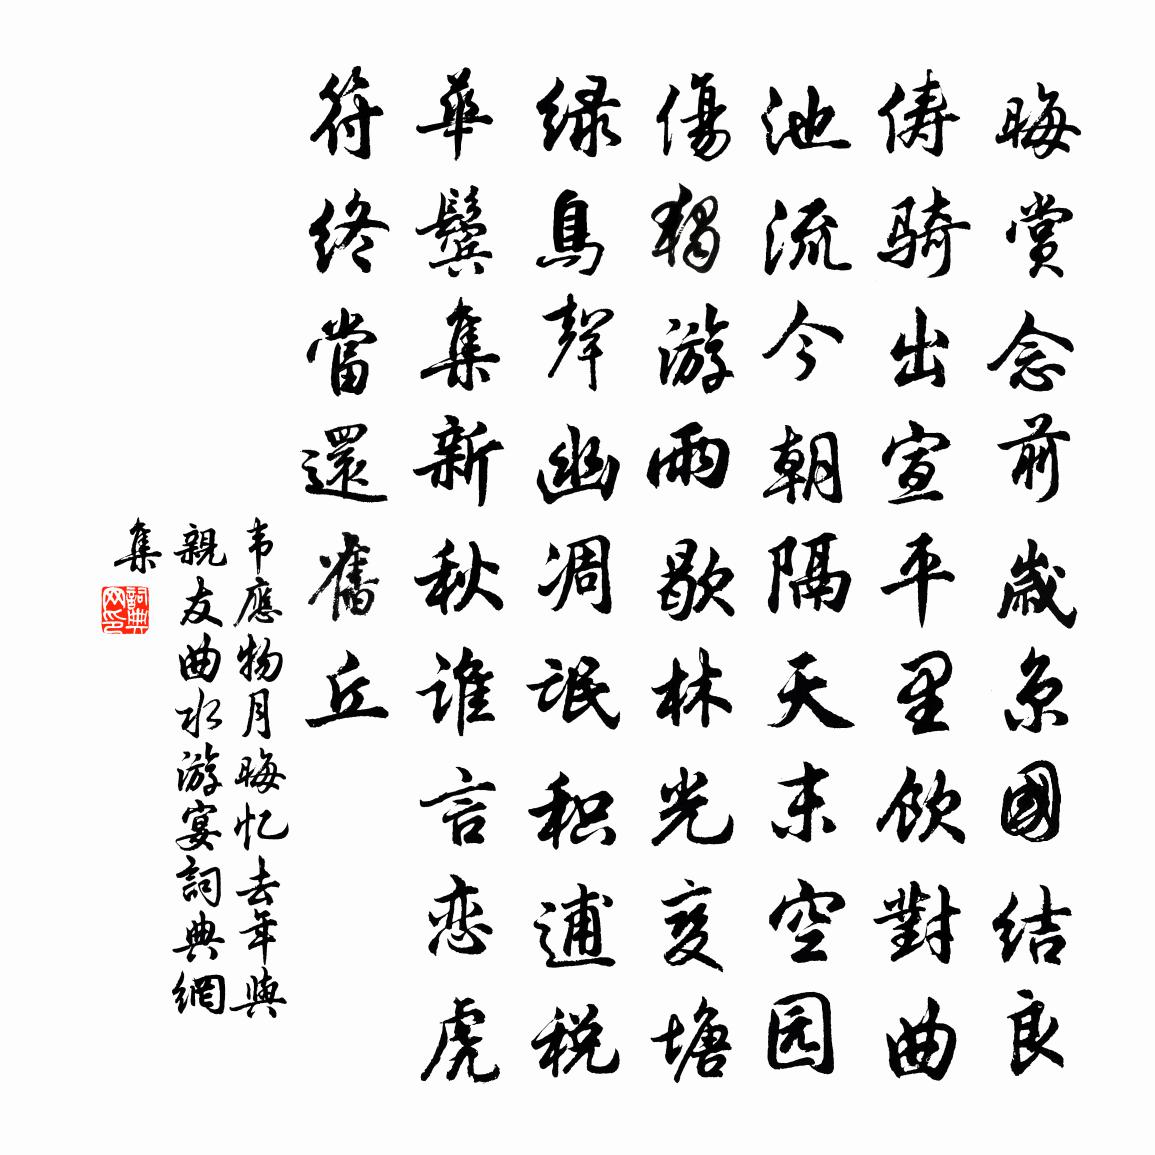 晦賞念前歲京國结良
俦骑出宣平里飲對曲
池流今朝隔天末空园
傷獨游雨歇林光变塘
绿鳥聲幽凋氓积逋税
華鬢集新秋谁言恋虎
符终當還舊丘
韦應物月晦忆去年與
親友曲水游宴詞典網
集
詞典网印